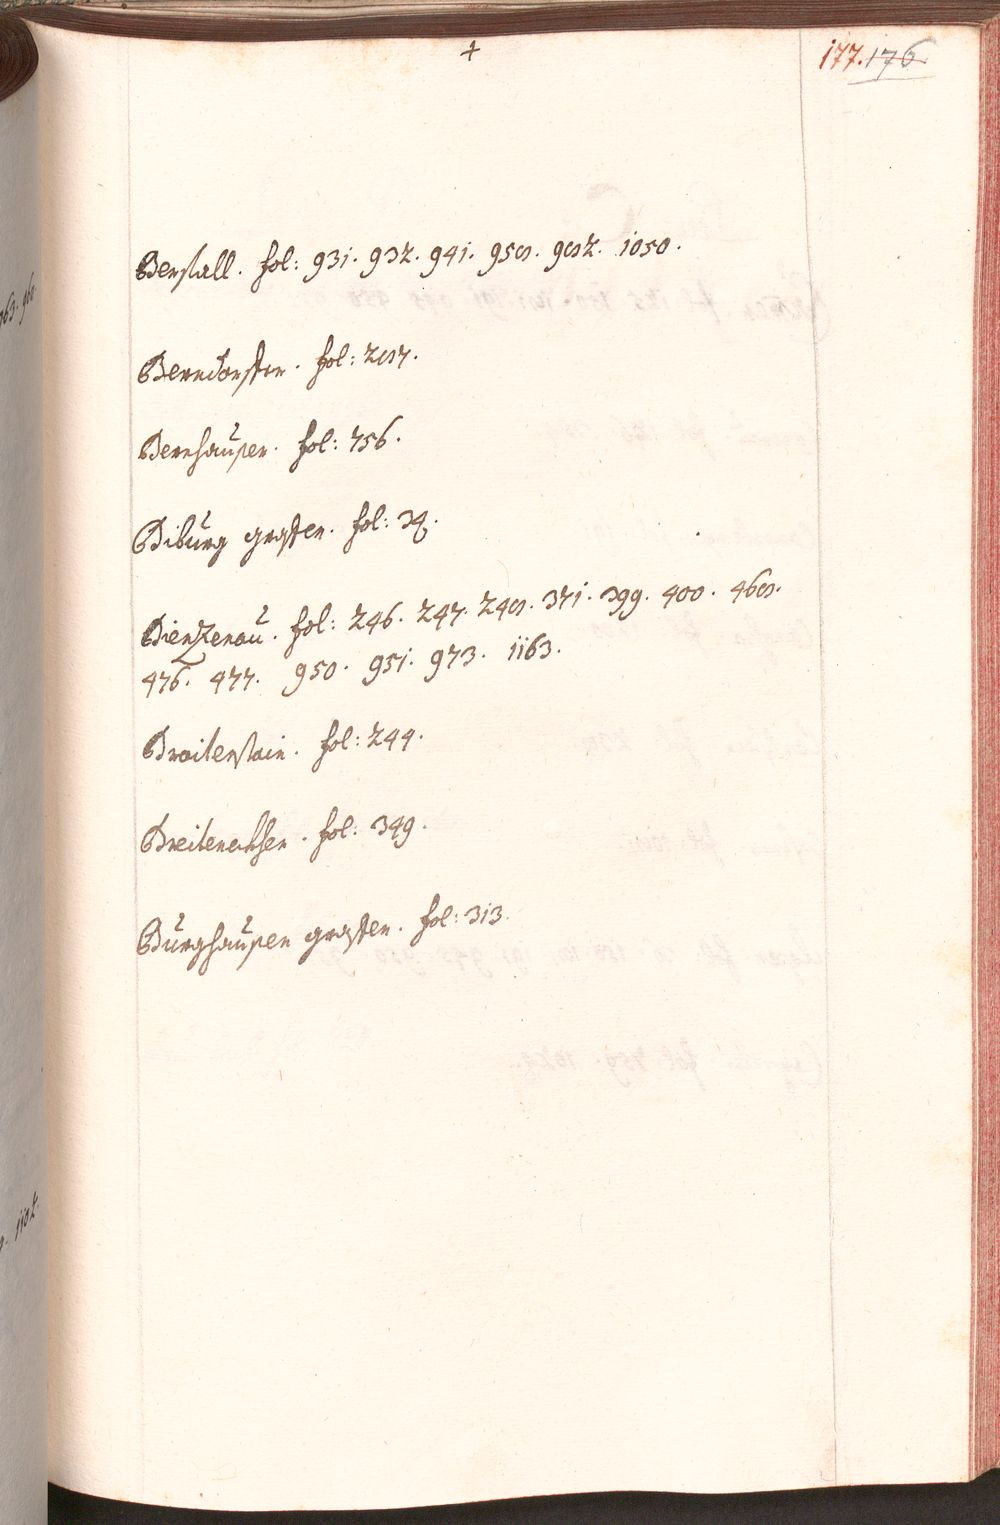 +
177. 176
Berstall. fol: 931. 932. 941. 958. 982. 1050.
Berndorffer. fol: 287.
Bernhausen. fol: 756.
Biburg graffen. fol: 34.
Bientzenau. fol: 246. 247. 248. 371. 399. 400. 468.
476. 477. 950. 951. 973. 1163.
Braitenstain. fol: 244.
Breitenekher. fol: 349.
Burghausen graffen. fol: 313.